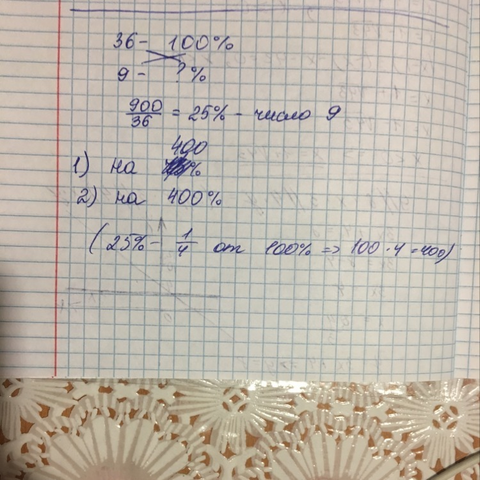 36 - 100%
9 - ?%
900/36 = 25% - число 9
400
1) на %
2) на 400%
(25% - 1/4 от 100% => 100 · 4 = 400)